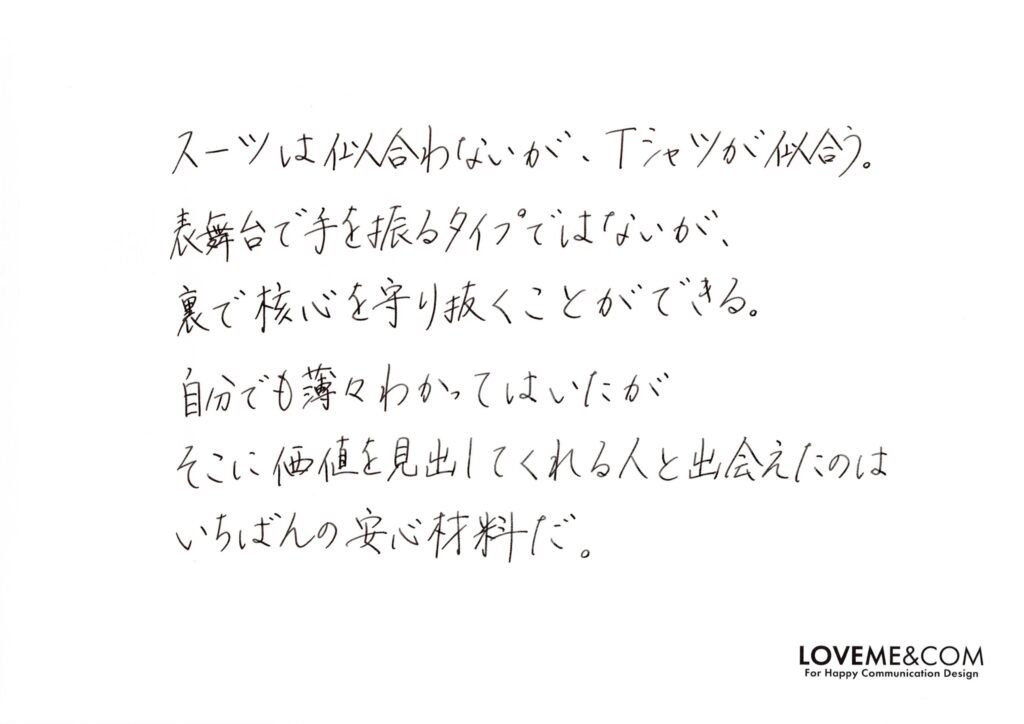 スーツは似合わないが、Tシャツが似合う。
表舞台で手を振るタイプではないが、
裏で核心を守り抜くことができる。
自分でも薄々わかってはいたが
そこに価値を見出してくれる人と出会えたのは
いちばんの安心材料だ。
LOVEME&COM
For Happy Communication Design